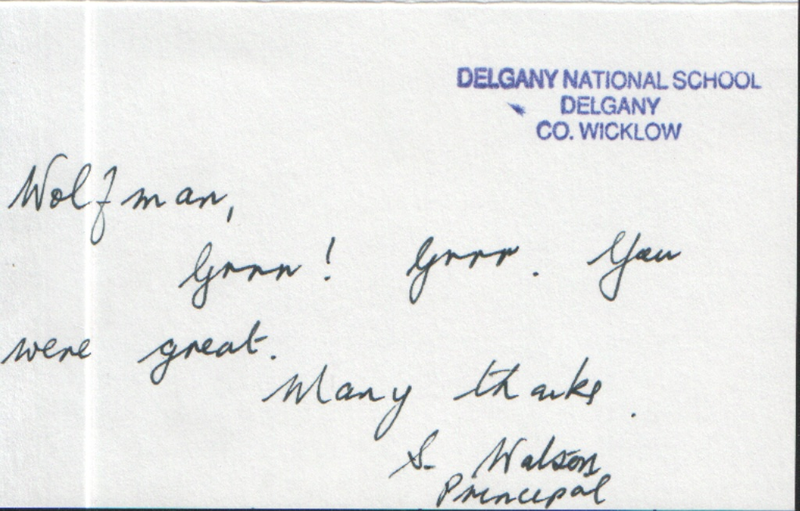 DELGANY NATIONAL SCHOOL
DELGANY
CO. WICKLOW
Wolfman,
Grrr! Grrr. You
were great.
Many thanks.
S. Watson
Principal